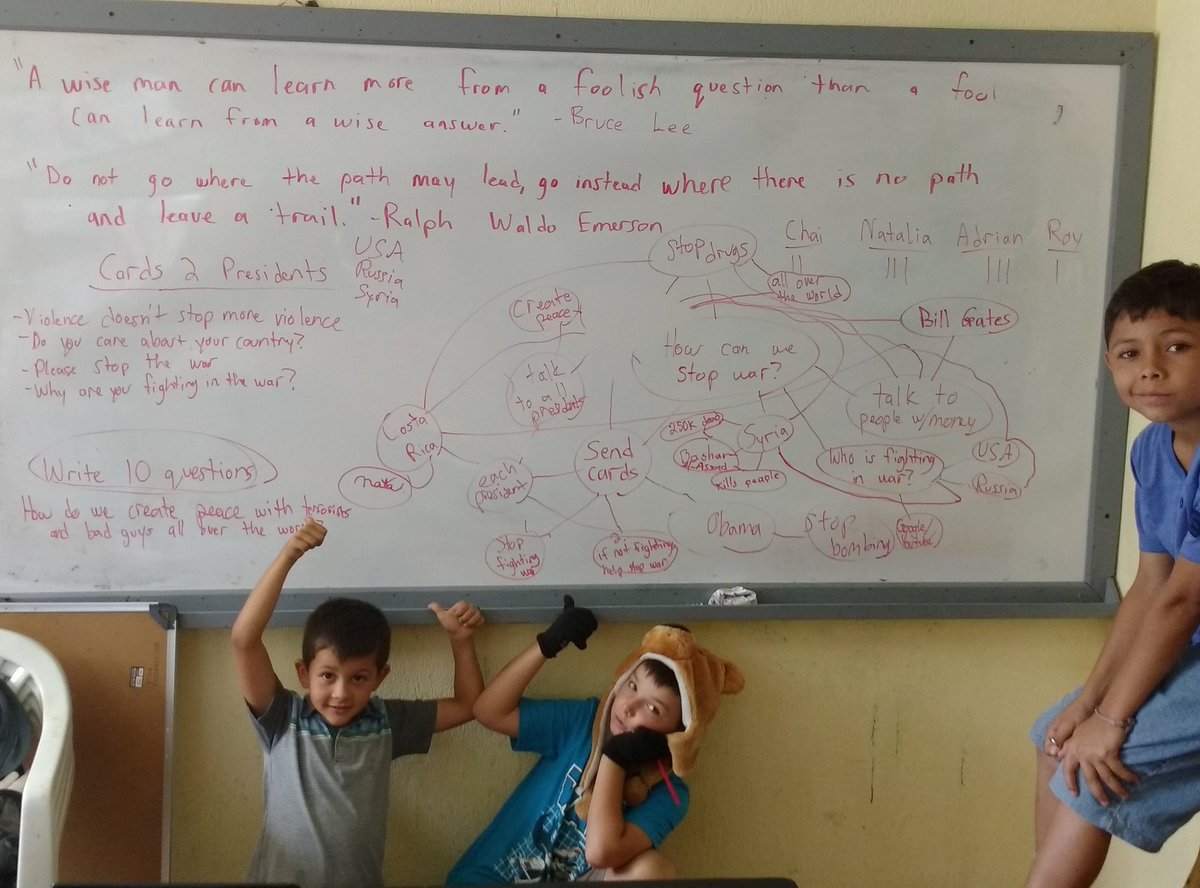 "A wise man can learn more from a foolish question than a fool
can learn from a wise answer." - Bruce Lee
"Do not go where the path may lead, go instead where there is no path
and leave a trail." - Ralph Waldo Emerson
Cards 2 Presidents
USA
Russia
Syria
~Violence doesn't stop more violence
- Do you care about your country?
- Please stop the war
- Why are you fighting in the war?
Write 10 questions
How do we create peace with terrorists
and bad guys all over the
Chai Natalia Adrian Roy
|| ||| ||| |
Stop drugs
all over
the world
Create
peace
Bill Gates
How can we
stop war?
talk
to all
presidents
talk to
people w/money
Costa
Rica
Send
cards
250K dead
Syria
Bashar
kills people
Who is fighting
in war?
USA
Russia
each
president
Obama
Stop
bombing
Google/
Youtube
1
Stop
fighting
war
2
if not fighting
help stop war